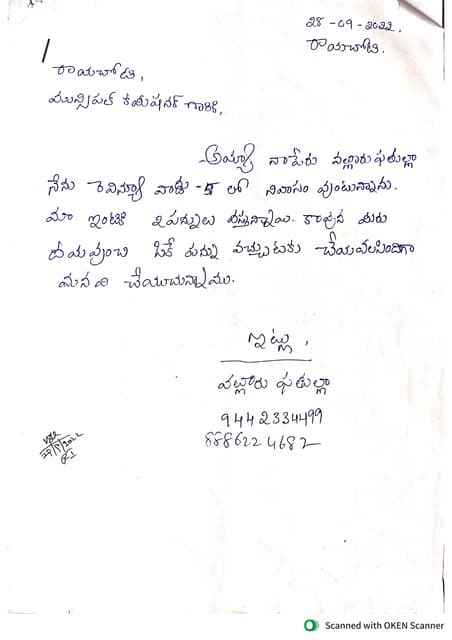 28-09-2022.
రాయచోటి.
రాయచోటి,
మున్సిపల్ కమీషనర్ గారికి,
అయ్యా నాపేరు వల్లూరు ఫతుల్లా
నేను రెవిన్యూ వార్డు-5 లో నివాసం వుంటున్నాను.
మా ఇంటికి 2 పన్నులు వస్తున్నాయి. కావున తమరు
దయవుంచి ఒకే పన్ను వచ్చుటకు చేయవలసిందిగా
మనవి చేయుచున్నాము.
ఇట్లు,
వల్లూరు ఫతుల్లా
9442334499
8886224682
RI
Scanned with OKEN Scanner